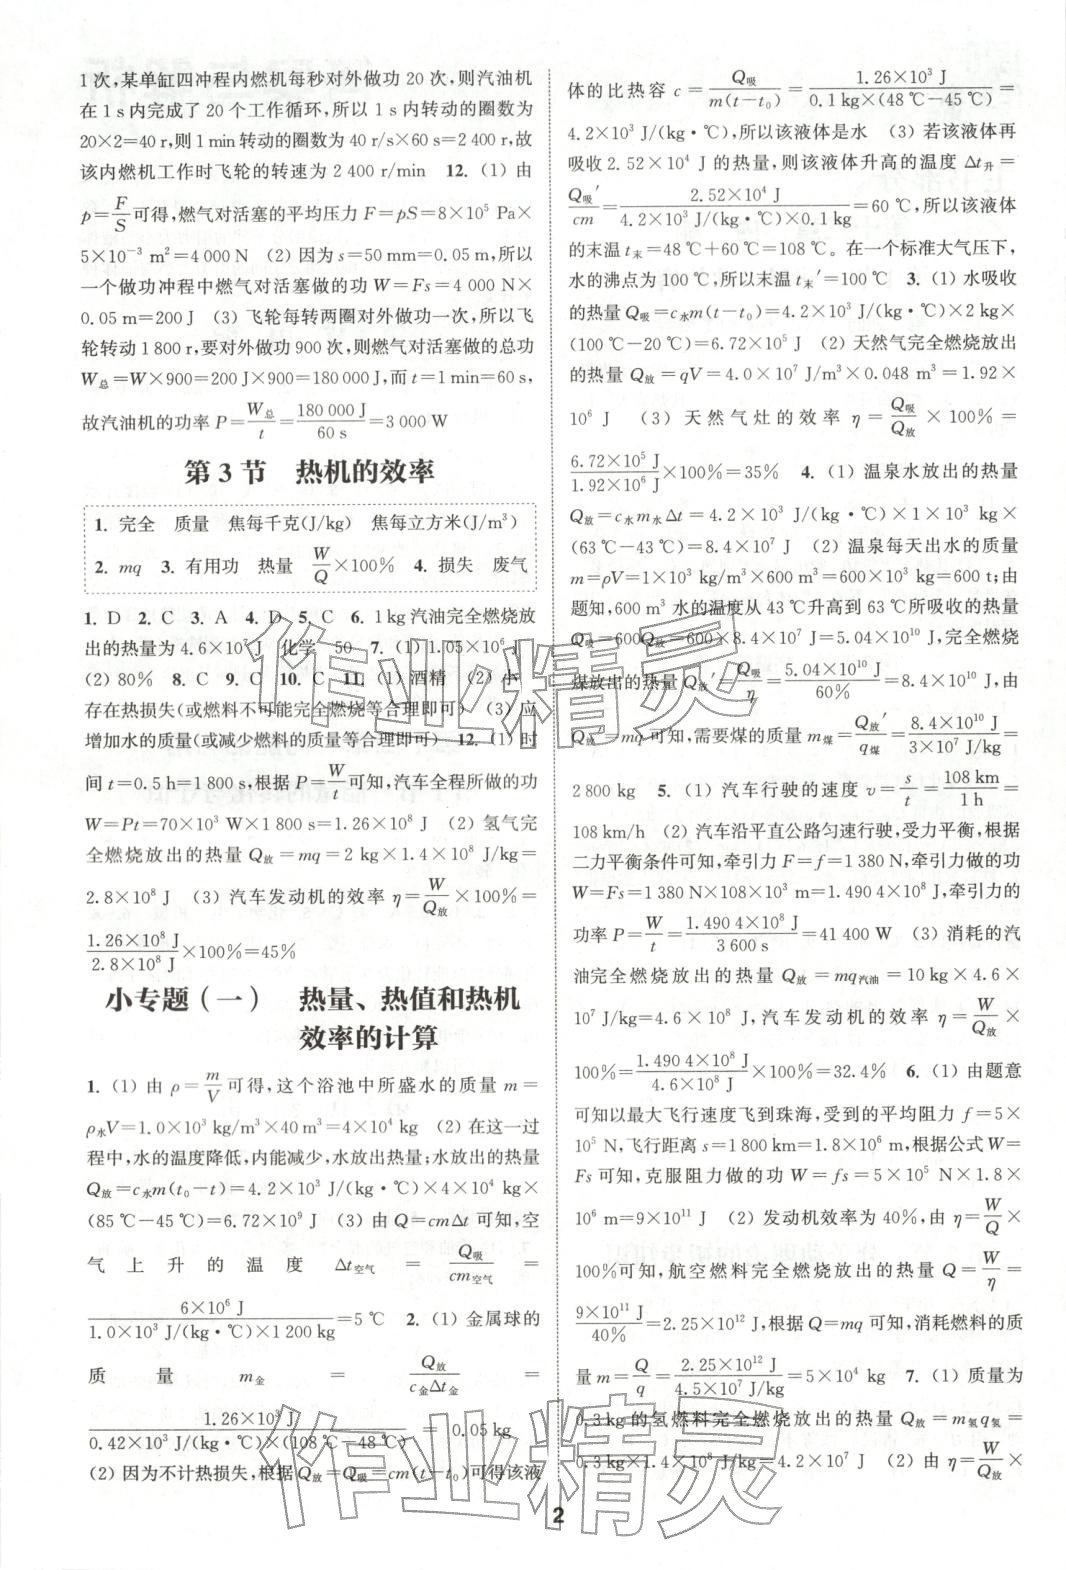 1 次,某单缸四冲程内燃机每秒对外做功 20 次,则汽油机
在 1 s 内完成了 20 个工作循环,所以 1 s 内转动的圈数为
20×2=40 r,则 1 min 转动的圈数为 40 r/s×60 s=2 400 r,故
该内燃机工作时飞轮的转速为 2 400 r/min 12. (1) 由
p=F/S可得,燃气对活塞的平均压力 F=pS=8×10⁵ Pa×
5×10⁻³ m²=4 000 N (2) 因为 s=50 mm=0.05 m,所以
一个做功冲程中燃气对活塞做的功 W=Fs=4 000 N×
0.05 m=200 J (3) 飞轮每转两圈对外做功一次,所以飞
轮转动 1 800 r,要对外做功 900 次,则燃气对活塞做的总功
W总=W×900=200 J×900=180 000 J,而 t=1 min=60 s,
故汽油机的功率 P=W总/t=180 000 J/60 s=3 000 W
第 3 节 热机的效率
1. 完全 质量 焦每千克(J/kg) 焦每立方米(J/m³)
2. mq 3. 有用功 热量 W/Q×100% 4. 损失 废气
1. D 2. C 3. A 4. D 5. C 6. 1 kg 汽油完全燃烧放
出的热量为 4.6×10⁷ J 化学 50 7. (1) 1.05×10⁶ J
(2) 80% 8. C 9. C 10. C 11. (1) 酒精 (2) 小
存在热损失(或燃料不可能完全燃烧等合理即可) (3) 应
增加水的质量(或减少燃料的质量等合理即可) 12. (1) 时
间 t=0.5 h=1 800 s,根据 P=W/t可知,汽车全程所做的功
W=Pt=70×10³ W×1 800 s=1.26×10⁸ J (2) 氢气完
全燃烧放出的热量 Q放=mq=2 kg×1.4×10⁸ J/kg=
2.8×10⁸ J (3) 汽车发动机的效率 η=W/Q放×100%=
1.26×10⁸ J/2.8×10⁸ J×100%=45%
小专题(一) 热量、热值和热机
效率的计算
1. (1) 由 ρ=m/V可得,这个浴池中所盛水的质量 m=
ρ水V=1.0×10³ kg/m³×40 m³=4×10⁴ kg (2) 在这一过
程中,水的温度降低,内能减少,水放出热量;水放出的热量
Q放=c水m(t₀-t)=4.2×10³ J/(kg·℃)×4×10⁴ kg×
(85 ℃-45 ℃)=6.72×10⁹ J (3) 由 Q=cmΔt 可知,空
气上升的温度 Δt空气=Q吸/cm空气=
6×10⁶ J/1.0×10³ J/(kg·℃)×1 200 kg=5 ℃ 2. (1) 金属球的
质量 m金=Q放/c金Δt金=
1.26×10³ J/0.42×10³ J/(kg·℃)×(108 ℃-48 ℃)=0.05 kg
(2) 因为不计热损失,根据 Q放=Q吸=cm(t-t₀)可得该液
体的比热容 c=Q吸/m(t-t₀)=1.26×10³ J/0.1 kg×(48 ℃-45 ℃)=
4.2×10³ J/(kg·℃),所以该液体是水 (3) 若该液体再
吸收 2.52×10⁴ J 的热量,则该液体升高的温度 Δt升=
Q吸′/cm=2.52×10⁴ J/4.2×10³ J/(kg·℃)×0.1 kg=60 ℃,所以该液体
的末温 t末=48 ℃+60 ℃=108 ℃。在一个标准大气压下,
水的沸点为 100 ℃,所以末温 t末′=100 ℃ 3. (1) 水吸收
的热量 Q吸=c水m(t-t₀)=4.2×10³ J/(kg·℃)×2 kg×
(100 ℃-20 ℃)=6.72×10⁵ J (2) 天然气完全燃烧放出
的热量 Q放=qV=4.0×10⁷ J/m³×0.048 m³=1.92×
10⁶ J (3) 天然气灶的效率 η=Q吸/Q放×100%=
6.72×10⁵ J/1.92×10⁶ J×100%=35% 4. (1) 温泉水放出的热量
Q放=c水m水Δt=4.2×10³ J/(kg·℃)×1×10³ kg×
(63 ℃-43 ℃)=8.4×10⁷ J (2) 温泉每天出水的质量
m=ρV=1×10³ kg/m³×600 m³=600×10³ kg=600 t;由
题知,600 m³ 水的温度从 43 ℃升高到 63 ℃所吸收的热量
Q吸=600Q放=600×8.4×10⁷ J=5.04×10¹⁰ J,完全燃烧
煤放出的热量 Q放′=Q吸/η=5.04×10¹⁰ J/60%=8.4×10¹⁰ J,由
Q放=mq 可知,需要煤的质量 m煤=Q放′/q煤=8.4×10¹⁰ J/3×10⁷ J/kg=
2 800 kg 5. (1) 汽车行驶的速度 v=s/t=108 km/1 h=
108 km/h (2) 汽车沿平直公路匀速行驶,受力平衡,根据
二力平衡条件可知,牵引力 F=f=1 380 N,牵引力做的功
W=Fs=1 380 N×108×10³ m=1.490 4×10⁸ J,牵引力的
功率 P=W/t=1.490 4×10⁸ J/3 600 s=41 400 W (3) 消耗的汽
油完全燃烧放出的热量 Q放=mq汽油=10 kg×4.6×
10⁷ J/kg=4.6×10⁸ J,汽车发动机的效率 η=W/Q放×
100%=1.490 4×10⁸ J/4.6×10⁸ J×100%=32.4% 6. (1) 由题意
可知以最大飞行速度飞到珠海,受到的平均阻力 f=5×
10⁵ N,飞行距离 s=1 800 km=1.8×10⁶ m,根据公式 W=
Fs 可知,克服阻力做的功 W=fs=5×10⁵ N×1.8×
10⁶ m=9×10¹¹ J (2) 发动机效率为 40%,由 η=W/Q×
100%可知,航空燃料完全燃烧放出的热量 Q=W/η=
9×10¹¹ J/40%=2.25×10¹² J,根据 Q=mq 可知,消耗燃料的质
量 m=Q/q=2.25×10¹² J/4.5×10⁷ J/kg=5×10⁴ kg 7. (1) 质量为
0.3 kg 的氢燃料完全燃烧放出的热量 Q放=m氢q氢=
0.3 kg×1.4×10⁸ J/kg=4.2×10⁷ J (2) 由 η=W/Q放×
2
作业精灵
作业精灵